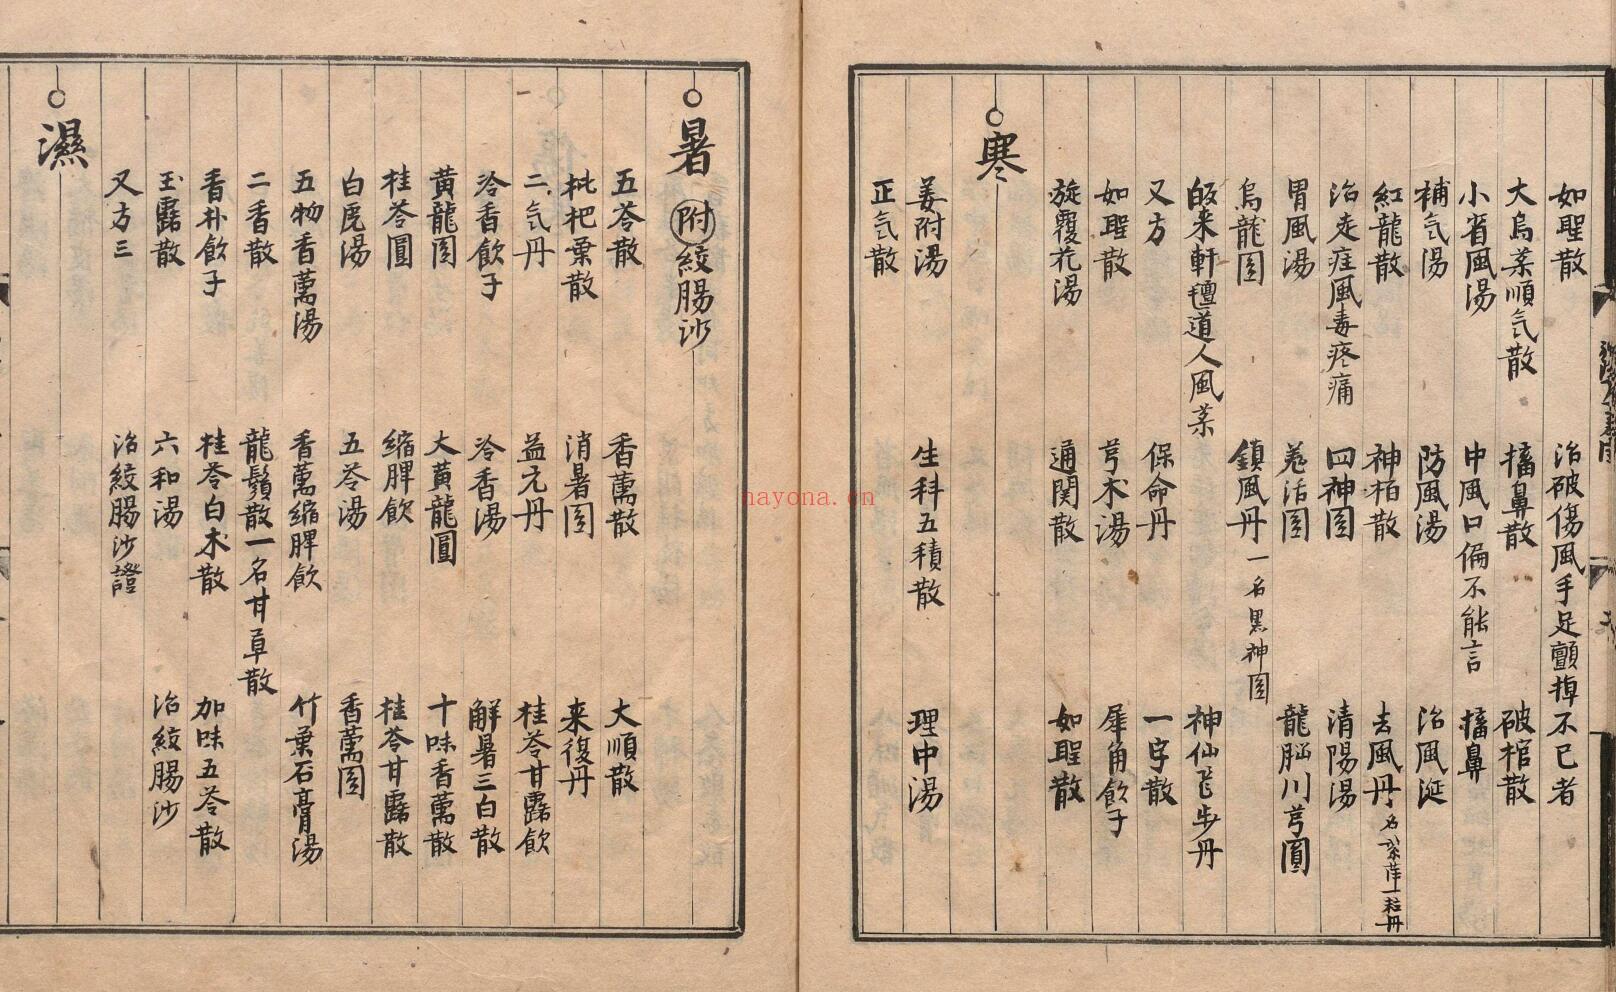 如聖散　治破傷風手足顫掉不已者
大烏菜順气散　搐鼻散　破棺散
小省風湯　中風口偏不能言　搐鼻
補气湯　防風湯　治風涎
紅龍散　神柏散　去風丹名紫萍一粒丹
治走疰風毒疼痛　四神圎　清陽湯
胃風湯　羗活圎　龍腦川芎圓
烏龍圎　鎮風丹一名黒神圎
皈来軒䡀道人風菜　神仙飞步丹
又方　保命丹　一字散
如聖散　芎术湯　犀角飲子
旋覆花湯　通関散　如聖散
○寒
姜附湯　生料五積散　理中湯
正气散
○暑 附絞腸沙
五苓散　香薷散　大順散
枇杷葉散　消暑圎　来復丹
二气丹　益元丹　桂苓甘露飲
冷香飲子　冷香湯　解暑三白散
黄龍圎　大黄龍圓　十味香薷散
桂苓圓　縮脾飲　桂苓甘露散
白虎湯　五苓湯　香薷圎
五物香薷湯　香薷縮脾飲　竹葉石膏湯
二香散　龍鬚散一名甘草散
香朴飲子　桂苓白术散　加味五苓散
玉露散　六和湯　治絞腸沙
又方三　治絞腸沙證
○濕
nayona.cn